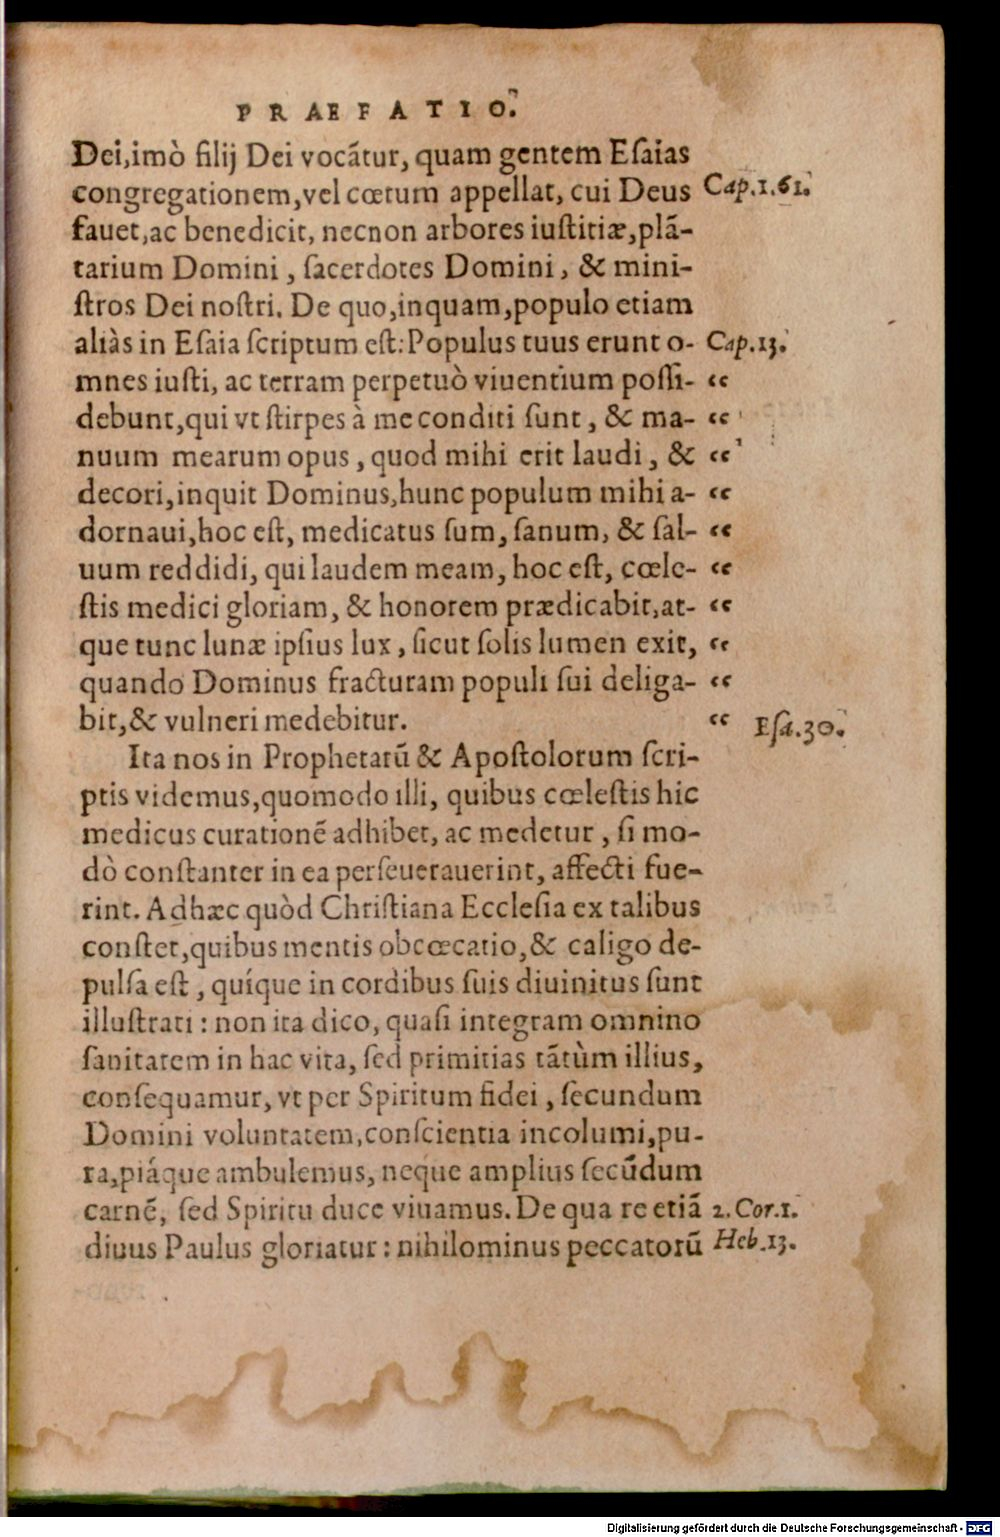 PRAEFATIO.
Dei, imò filij Dei vocãtur, quam gentem Eſaias
congregationem, vel cœtum appellat, cui Deus Cap.1.61.
fauet, ac benedicit, necnon arbores iuſtitiæ, plã-
tarium Domini, ſacerdotes Domini, & mini-
ſtros Dei noſtri. De quo, inquam, populo etiam
aliàs in Eſaia ſcriptum eſt: Populus tuus erunt o- Cap.13.
mnes iuſti, ac terram perpetuò viuentium poſſi- “
debunt, qui vt ſtirpes à me conditi ſunt, & ma- “
nuum mearum opus, quod mihi erit laudi, & “
decori, inquit Dominus, hunc populum mihi a- “
dornaui, hoc eſt, medicatus ſum, ſanum, & ſal- “
uum reddidi, qui laudem meam, hoc eſt, cœle- “
ſtis medici gloriam, & honorem prædicabit, at- “
que tunc lunæ ipſius lux, ſicut ſolis lumen exit, “
quando Dominus fracturam populi ſui deliga- “
bit, & vulneri medebitur. “ Eſa.30.
Ita nos in Prophetarũ & Apoſtolorum ſcri-
ptis videmus, quomodo illi, quibus cœleſtis hic
medicus curationẽ adhibet, ac medetur, ſi mo-
dò conſtanter in ea perſeuerauerint, affecti fue-
rint. Adhæc quòd Chriſtiana Eccleſia ex talibus
conſtet, quibus mentis obcœcatio, & caligo de-
pulſa eſt, quíque in cordibus ſuis diuinitus ſunt
illuſtrati: non ita dico, quaſi integram omnino
ſanitatem in hac vita, ſed primitias tãtùm illius,
conſequamur, vt per Spiritum fidei, ſecundum
Domini voluntatem, conſcientia incolumi, pu-
ra, piáque ambulemus, neque amplius ſecũdum
carnẽ, ſed Spiritu duce viuamus. De qua re etiã 2.Cor.1.
diuus Paulus gloriatur: nihilominus peccatorũ Heb.13.
Digitalisierung gefördert durch die Deutsche Forschungsgemeinschaft - DFG